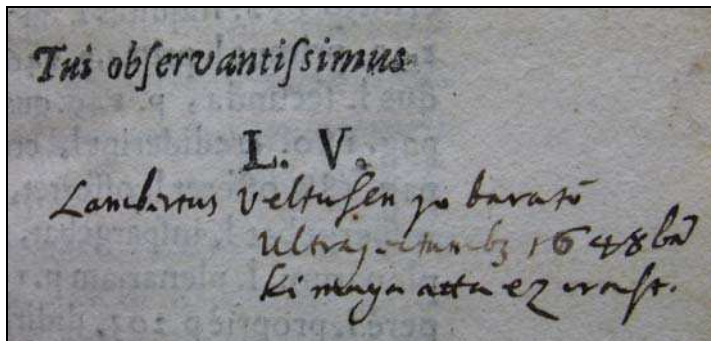 Tui obſervantiſsimus
L. V.
Lambertus Veltuſen jo barátō
Ultrajectumbā 1648 bā
ki maga atta ez iraſt.